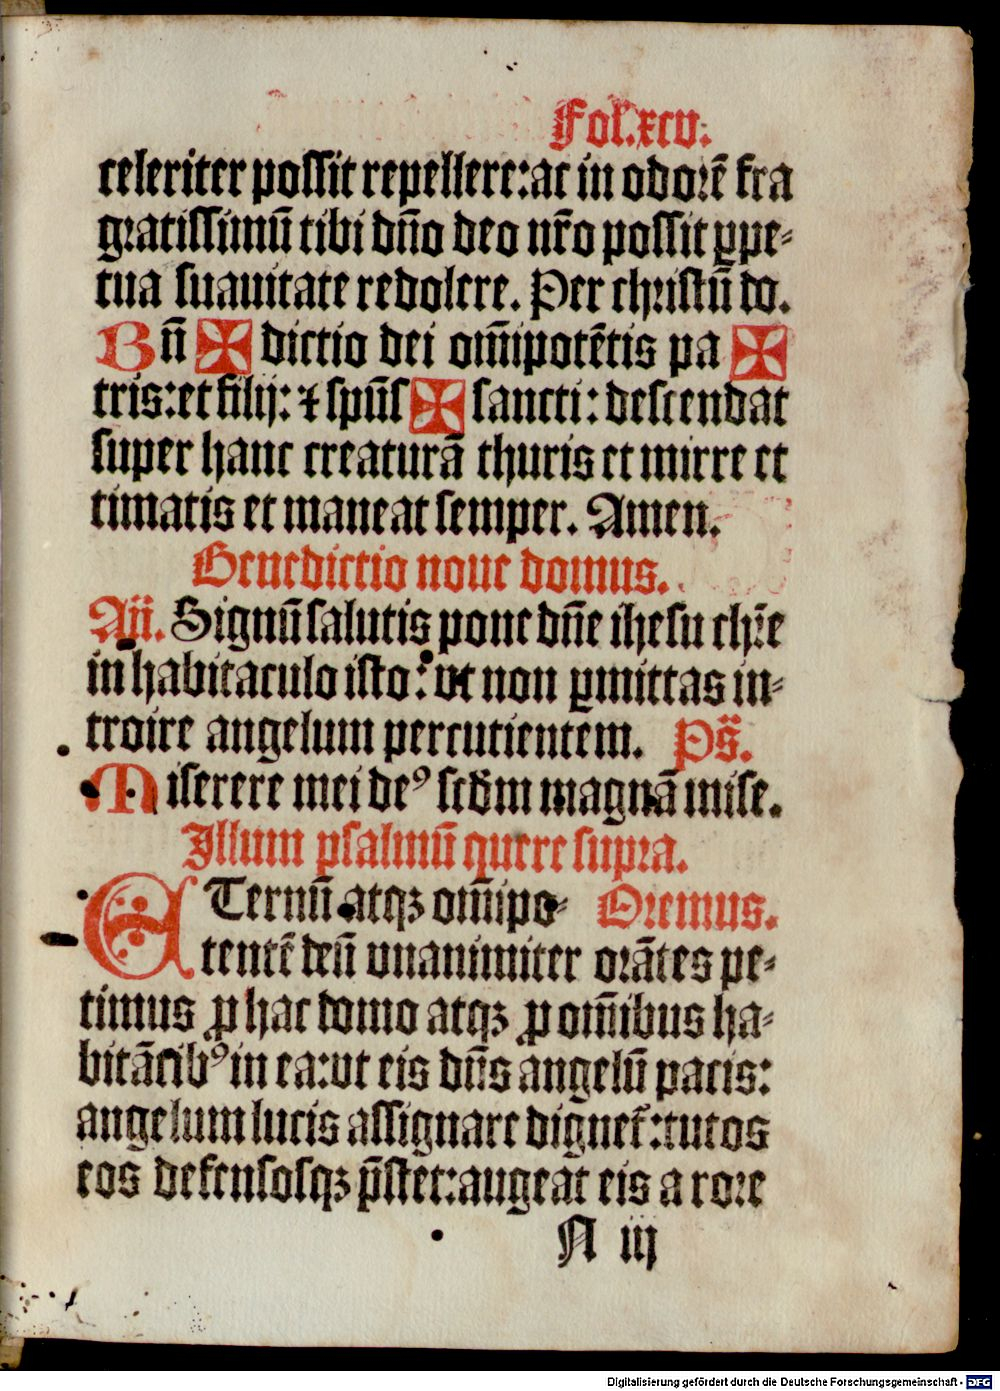 Fol. xcv.
celeriter possit repellere: ac in odorē fra
gratissimū tibi dño deo nr̄o possit ꝑpe⸗
tua suauitate redolere. Per christū do.
Bn̄ ✠ dictio dei om̄ipotētis pa ✠
tris: et filij: ⁊ spūs ✠ sancti: descendat
super hanc creaturā thuris et mirre et
timatis et maneat semper. Amen.
Benedictio noue domus.
Añ. Signū salutis pone dñe ihesu chr̄e
in habitaculo isto: vt non ꝑmittas in⸗
troire angelum percutientem. Ps̄.
Miserere mei deꝰ scd̄m magnā mise.
Illum psalmū quere supra.
ETernū atqꝫ om̄ipo⸗ Oremus.
tentē deū vnanimiter orātes pe⸗
timus ꝓ hac domo atqꝫ ꝓ om̄ibus ha⸗
bitātibꝰ in ea: vt eis dñs angelū pacis:
angelum lucis assignare dignet̄: tutos
eos defensosqꝫ p̄stet: augeat eis a rore
N iij
Digitalisierung gefördert durch die Deutsche Forschungsgemeinschaft - DFG